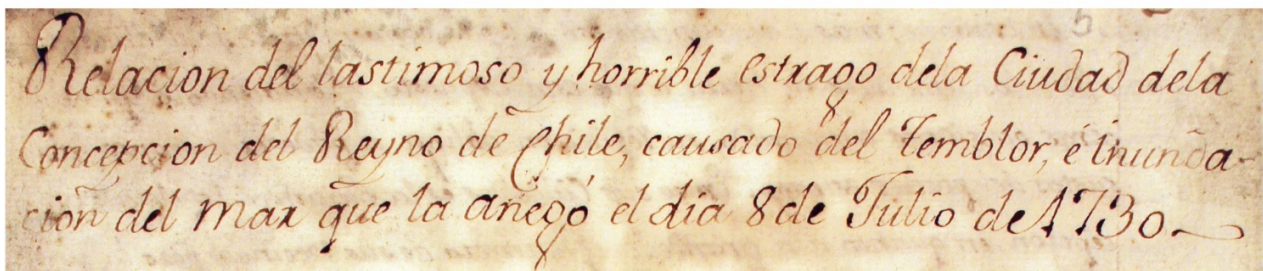 Relacion del lastimoso y horrible estrago dela Ciudad dela
Concepcion del Reyno de Chile, causado del Temblor, é inunda-
cion del mar que la anegó el dia 8 de Julio de 1730.